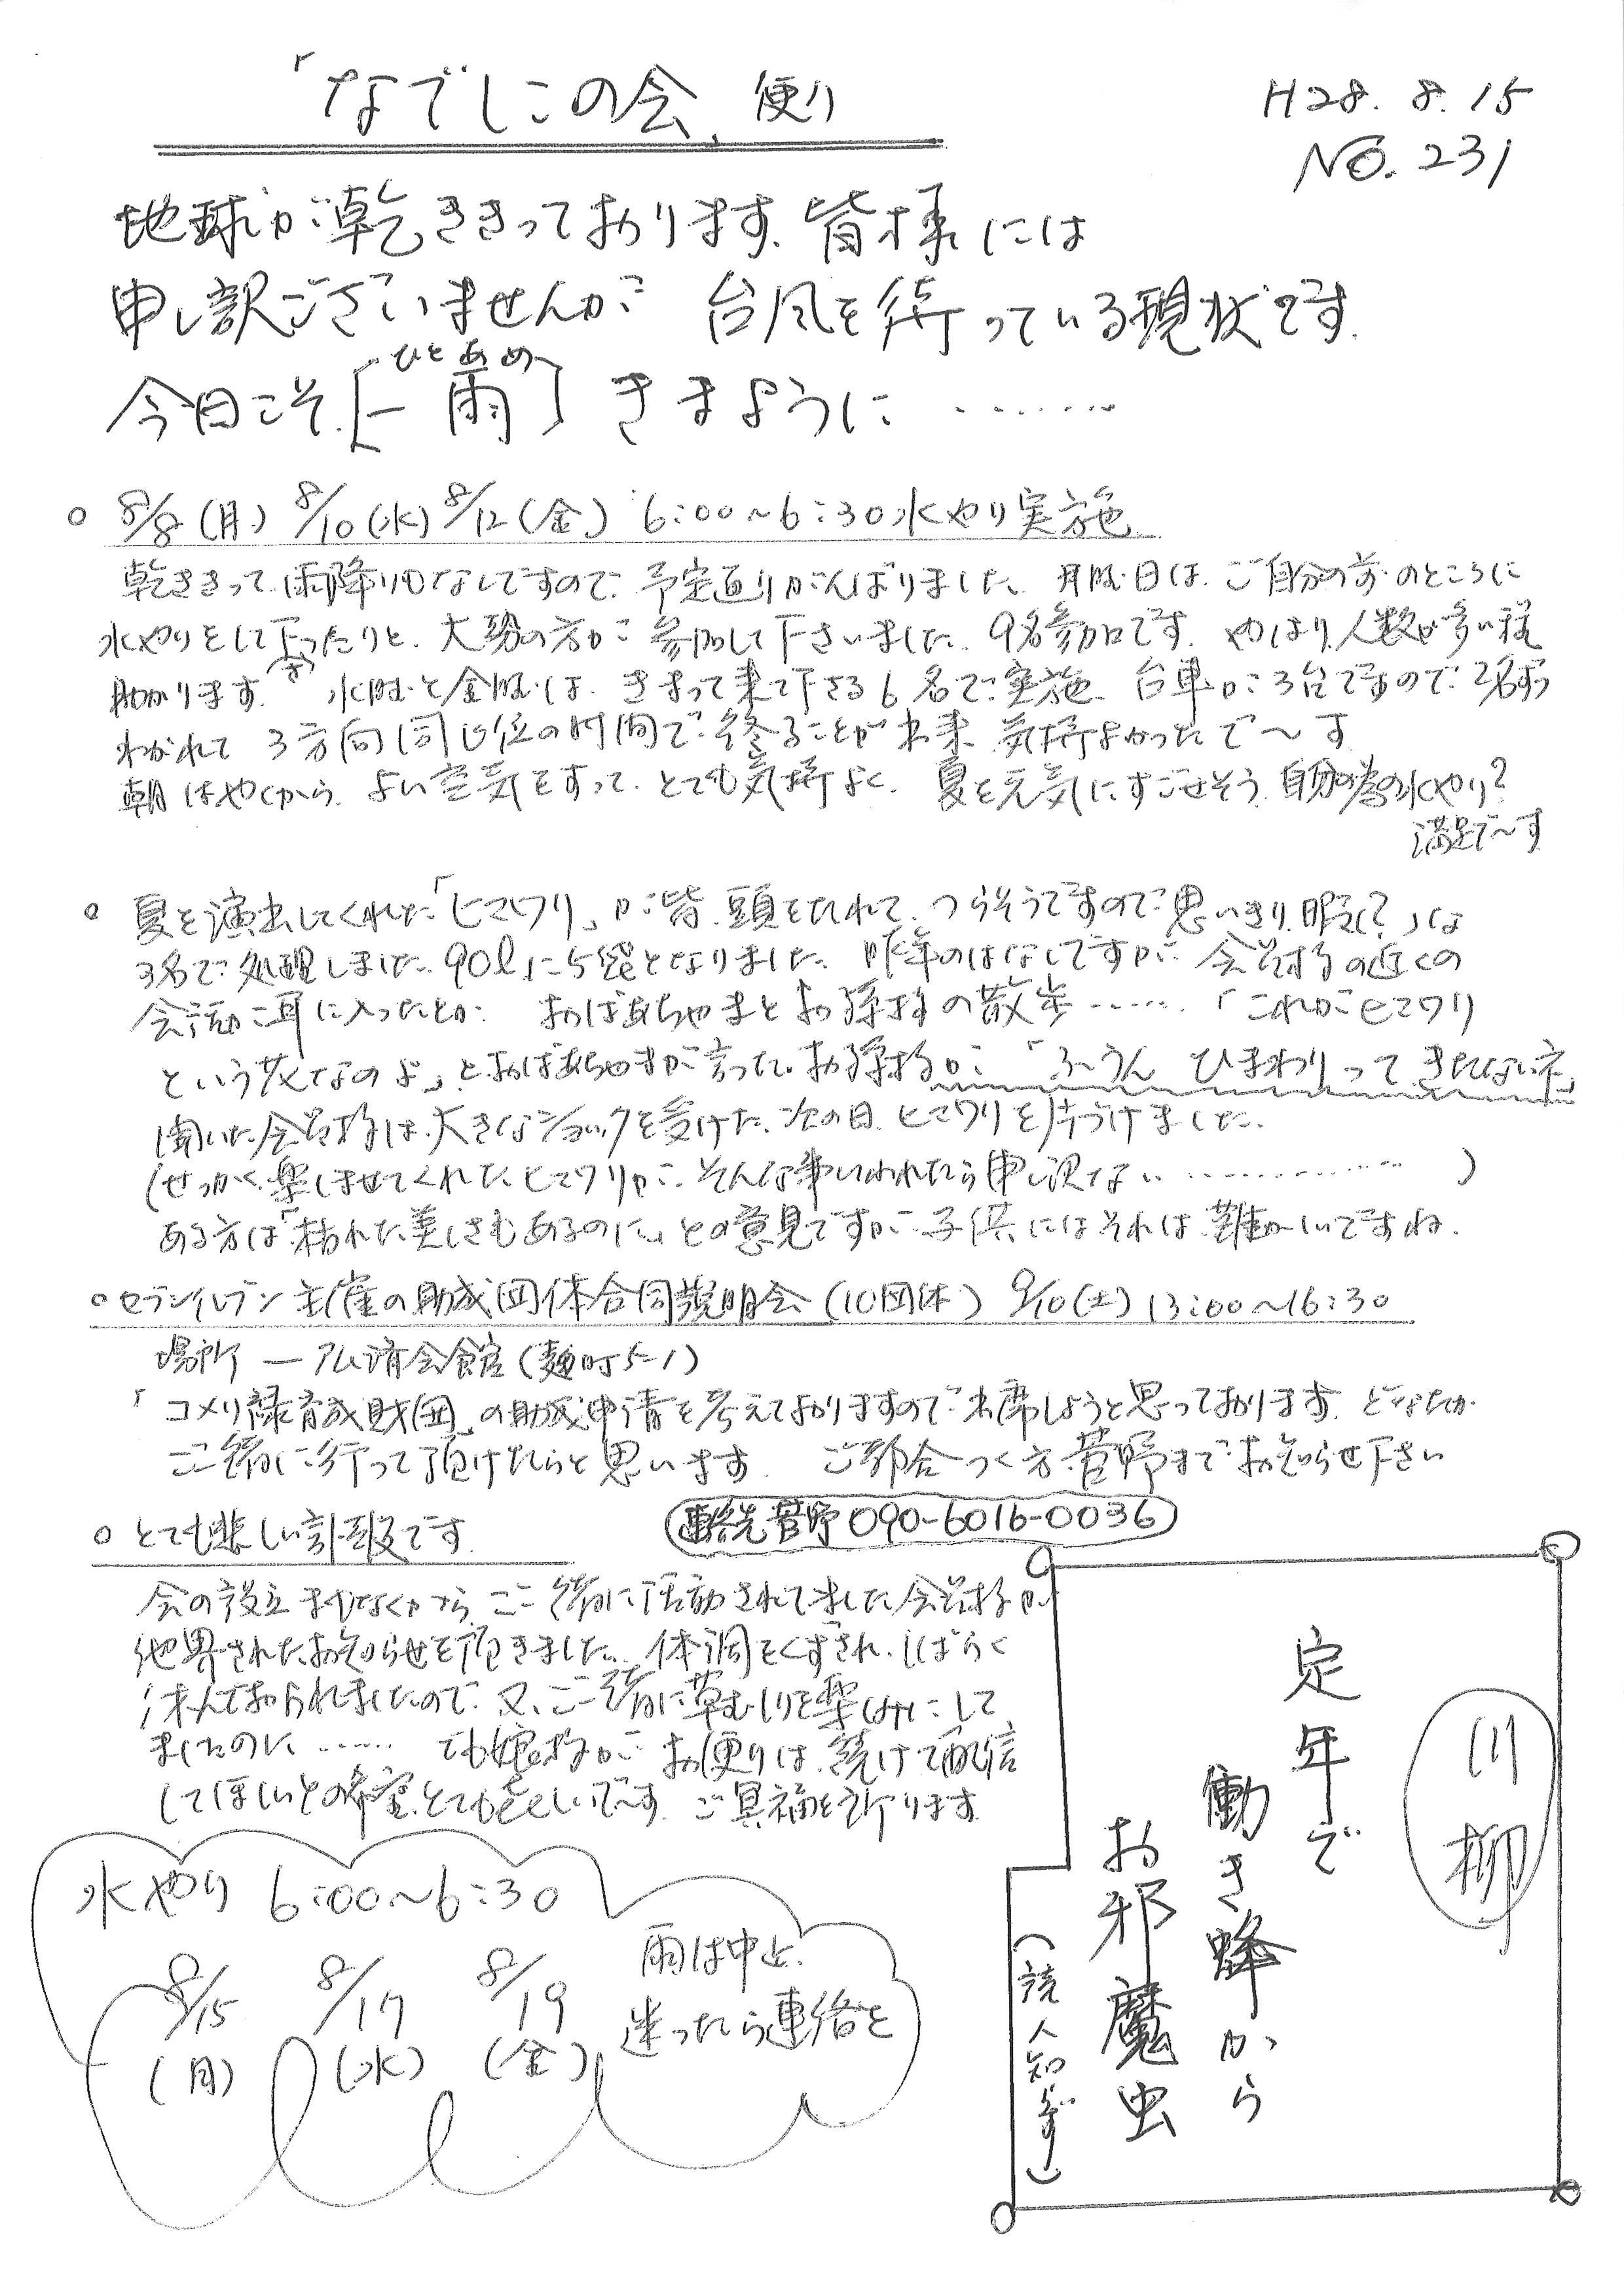 「なでしこの会」便り
H28.8.15
NO.231
地球が乾ききっております。皆様には
申し訳ございませんが 台風を待っている現状です。
今日こそ[一雨]きますように……
ひとあめ
○ 8/8(月) 8/10(水) 8/12(金) 6:00~6:30水やり実施
乾ききって雨降りなしですので、予定通りがんばりました。月曜日は、ご自分の前のところに
水やりをして下さったりと、大勢の方が参加して下さいました。9名参加です。やはり人数が多い程
助かります。水曜と金曜は、きまって来て下さる6名で実施、台車が3台ですので2名ずつ
わかれて 3方向同じ位の時間で終ることが出来 気持よかったで~す
朝はやくから、よい空気をすって、とても気持よく、夏を元気にすごせそう 自分の為の水やり?
満足で~す
○ 夏を演出してくれた「ヒマワリ」が皆、頭をたれて、つらそうですので思いきり
3名で処理しました。90ℓに5袋となりました。昨年のはなしですが 会員様の近くの
会話が耳に入ったとか おばあちゃまとお孫様の散歩……「これがヒマワリ
という花なのよ」とおばあちゃまが言った。お孫様が「ふうん ひまわりって きたない花」
聞いた会員様は、大きなショックを受けた。次の日、ヒマワリを片づけました。
(せっかく楽しませてくれたヒマワリが、そんな事いわれたら申し訳ない…………)
ある方は「枯れた美しさもあるのに」との意見ですが 子供にはそれは難かしいですね。
○セブンイレブン主催の助成団体合同説明会(10団体) 9/10(土)13:00~16:30
場所 ― 弘済会館(麹町5-1)
「コメリ緑育成財団」の助成申請を考えておりますので出席しようと思っております。どなたか
ご一緒に行って頂けたらと思います。 ご都合つく方 菅野までお知らせ下さい
連絡先菅野090-6016-0036
○ とても悲しい訃報です
会の設立まもなくから、ご一緒に活動されて来ました会員様が
他界されたお知らせを頂きました。体調をくずされ、しばらく
休んでおられましたので、又、ご一緒に草むしりを楽しみにして
ましたのに…… でも娘様が お便りは、続けて配信
してほしいとの希望、とても嬉しいで~す。ご冥福を祈ります
川柳
定年で
働き蜂から
お邪魔虫
(読人知らず)
水やり 6:00~6:30
8/15 8/17 8/19
(月) (水) (金)
雨は中止
迷ったら連絡を